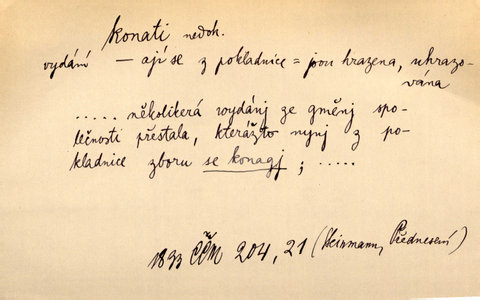 konati nedok.
vydání — ají se z pokladnice = jsou hrazena, uhrazo-
vána
..... několikerá wydánj ze gměnj spo-
lečnosti přestala, kterážto nynj z po-
kladnice zboru se konagj; .....
1893 ČČM 204, 21 (Heinmann, Přednesení)